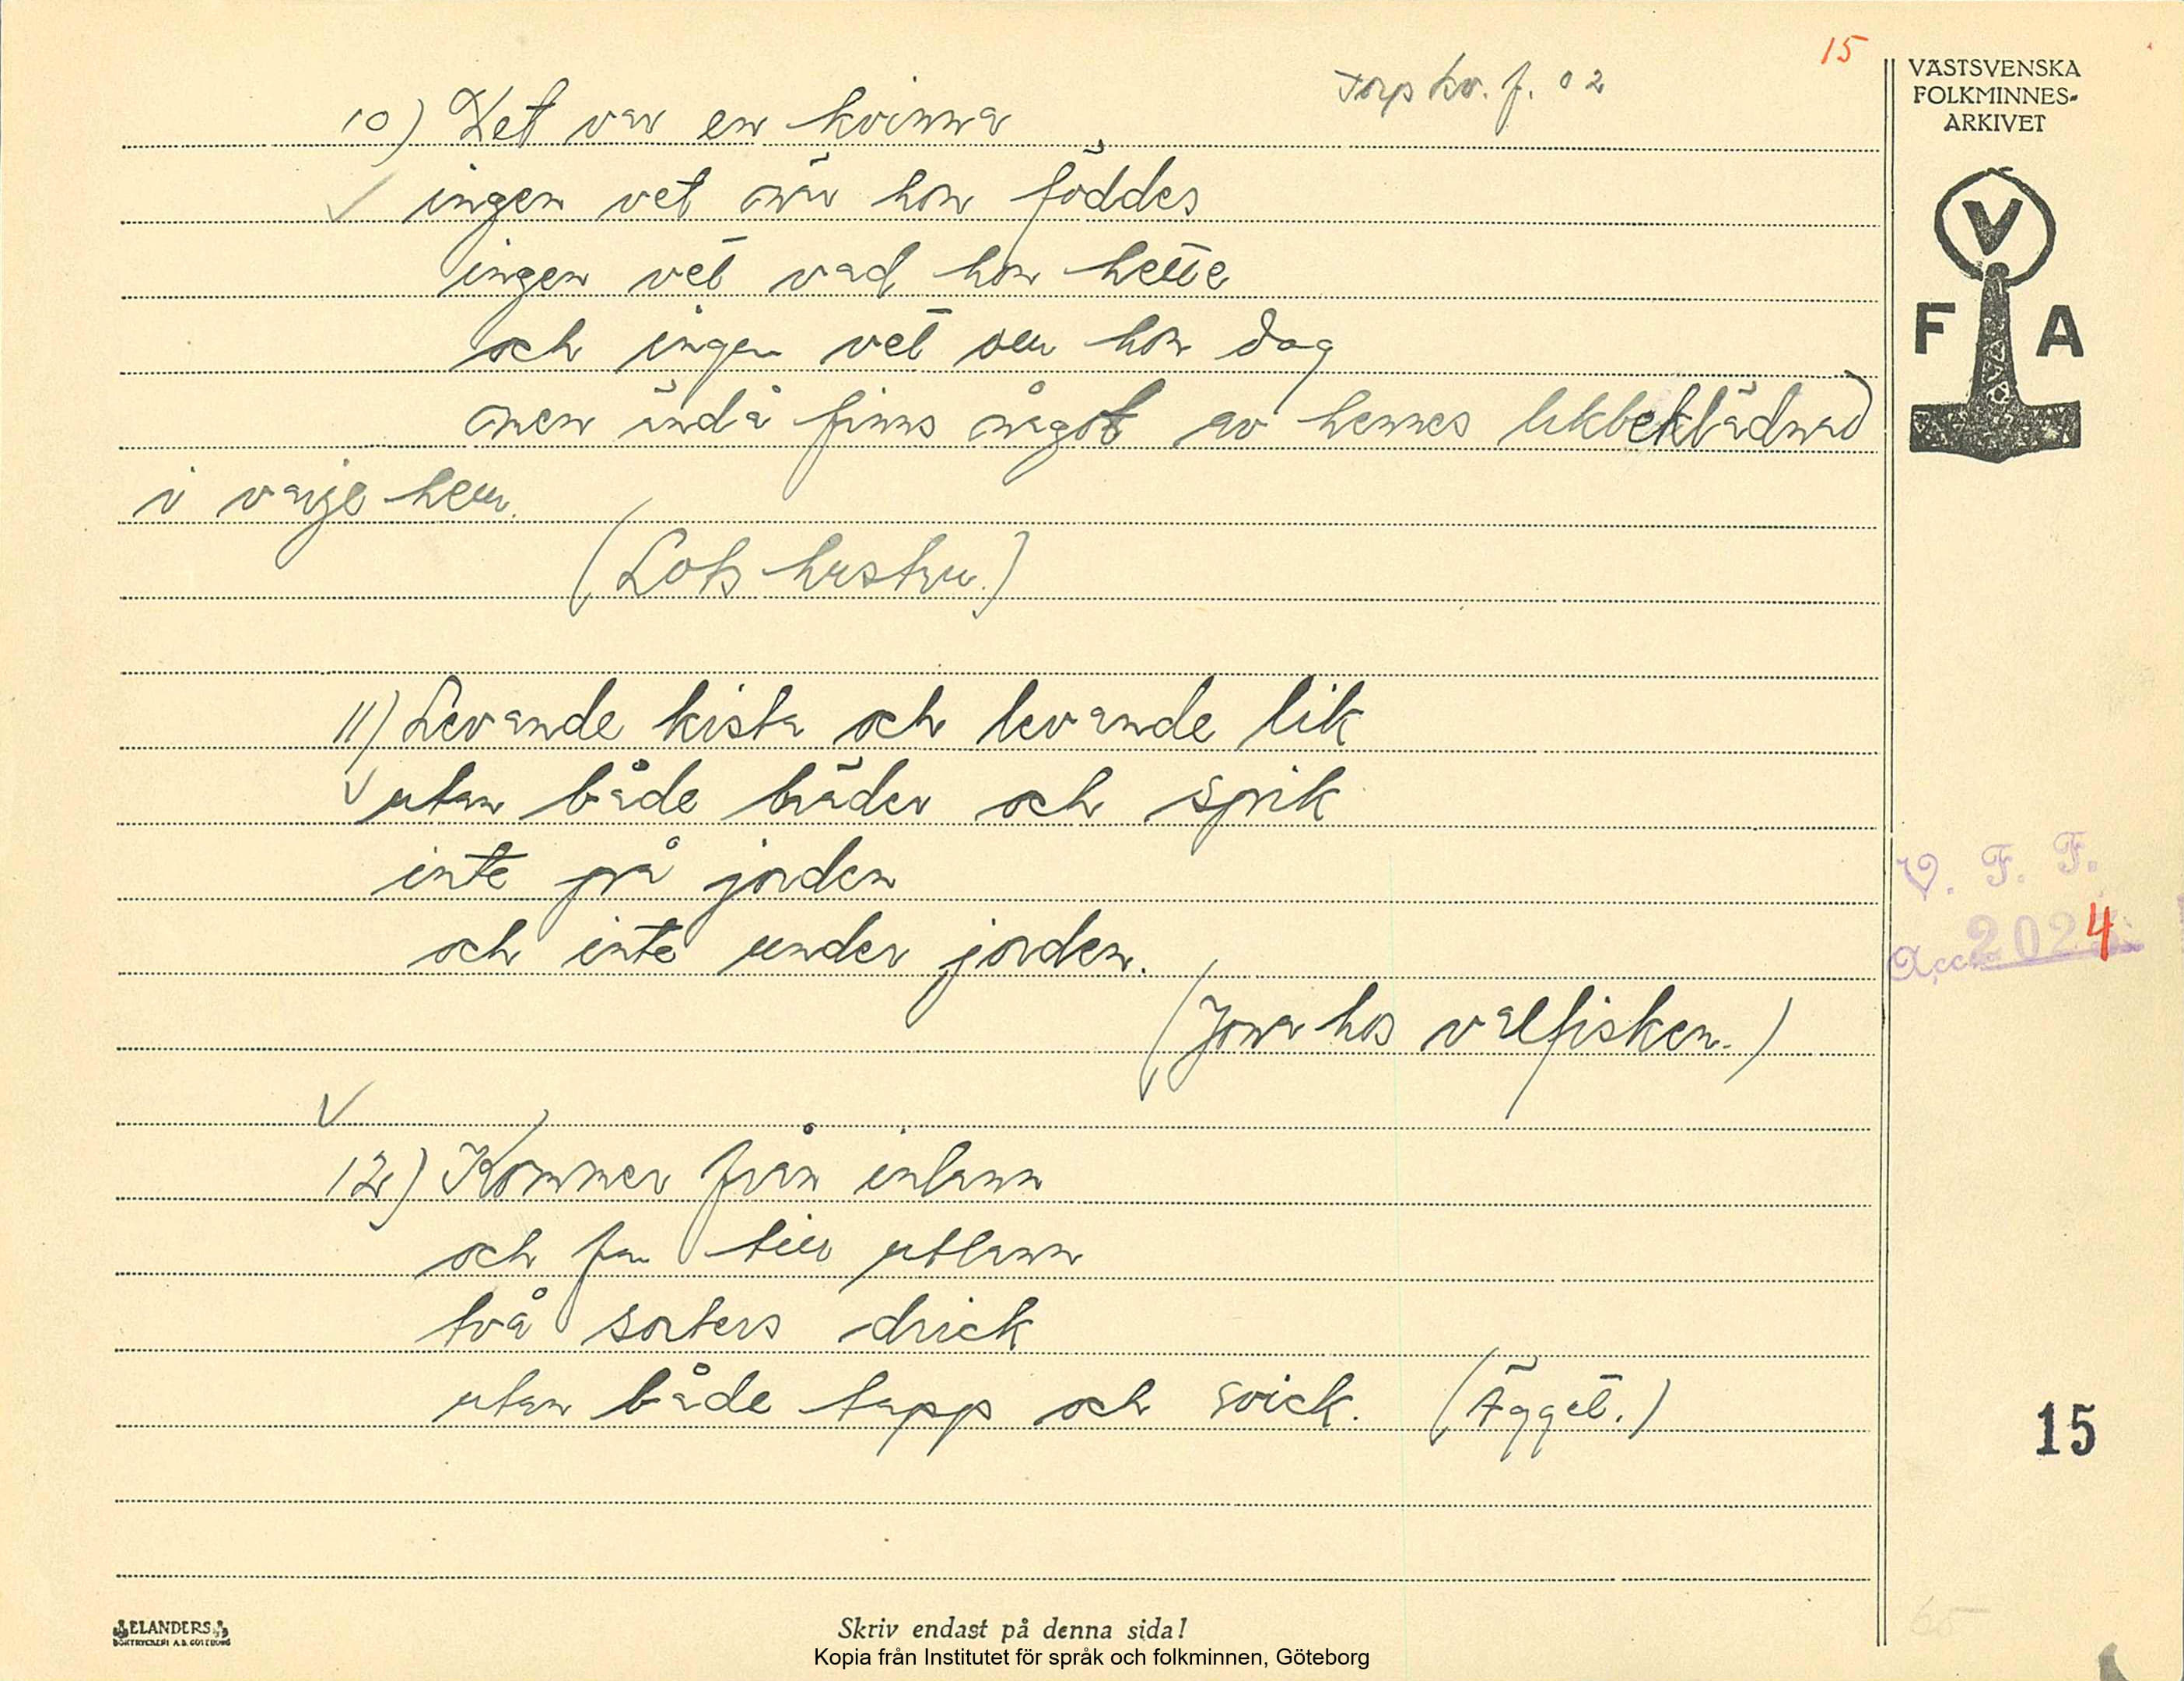 15
Torp kv. f. 02
VÄSTSVENSKA
FOLKMINNES-
ARKIVET
V
F A
10) Det var en kvinna
ingen vet när hon föddes
ingen vet vad hon hette
och ingen vet om hon dog
men ändå finns något av hennes likbeklädnad
i varje hem.
(Lots hustru.)
11) Levande kista och levande lik
utan både bräder och spik
inte på jorden
och inte under jorden.
(Jona hos valfisken.)
V. F. F.
Acc. 2024
12) Kommer från inlann
och far till utlann
två sorters drick
utan både tapp och svick. (Ägget.)
15
ELANDERS
BOKTRYCKERI A.B. GÖTEBORG
Skriv endast på denna sida!
Kopia från Institutet för språk och folkminnen, Göteborg